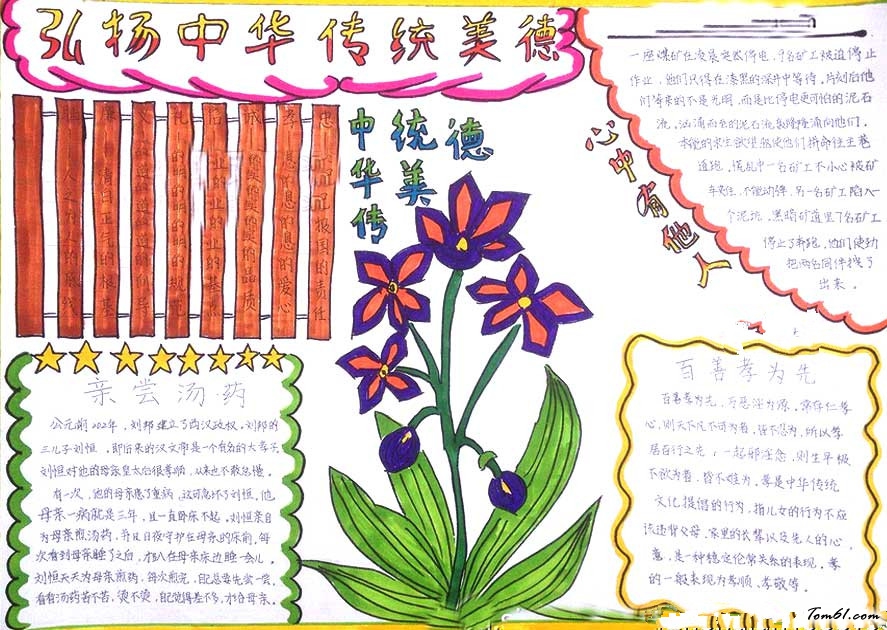 弘扬中华传统美德
中华传统美德
心中有他人
一座煤矿在凌晨突然停电，9名矿工被迫停止
作业，他们只得在漆黑的深井中等待，片刻后他
们等来的不是光明，而是比停电更可怕的泥石
流，汹涌而至的泥石流轰隆隆涌向他们。
本能的求生欲望驱使他们拼命往主巷
道跑，慌乱中一名矿工不小心被矿
车夹住，不能动弹，另一名矿工陷入一
个泥坑，黑暗矿道里7名矿工
停止了奔跑，他们使劲
把两名同伴拽了
出来。
忠 报国的责任
孝 的爱心
诚 的品质
信 的基点
礼 的规范
义 的引导
廉 清白正气的根基
耻
亲尝汤药
公元前202年，刘邦建立了西汉政权，刘邦的
三儿子刘恒，即后来的汉文帝是一个有名的大孝子
刘恒对他的母亲皇太后很孝顺，从来也不敢怠慢。
有一次，他的母亲患了重病，这可急坏了刘恒，他
母亲一病就是三年，且一直卧床不起，刘恒亲自
为母亲煎汤药，并且日夜守护在母亲的床前，每
次看到母亲睡了之后，才趴在母亲床边睡一会儿。
刘恒天天为母亲煎药，每次煎完，自己总先尝一尝，
看看汤药苦不苦，烫不烫，自己觉得差不多，才给母亲。
百善孝为先
百善孝为先，万恶淫为源，常存仁孝
心，则天下凡不可为者，皆不忍为，所以孝
居百行之先；一起邪淫念，则生平极
不欲为者，皆不难为，孝是中华传统
文化提倡的行为，指儿女的行为不应
该违背父母、家里的长辈以及先人的心
意，是一种稳定伦常关系的表现，孝
的一般表现为孝顺，孝敬等。
Tom61.com